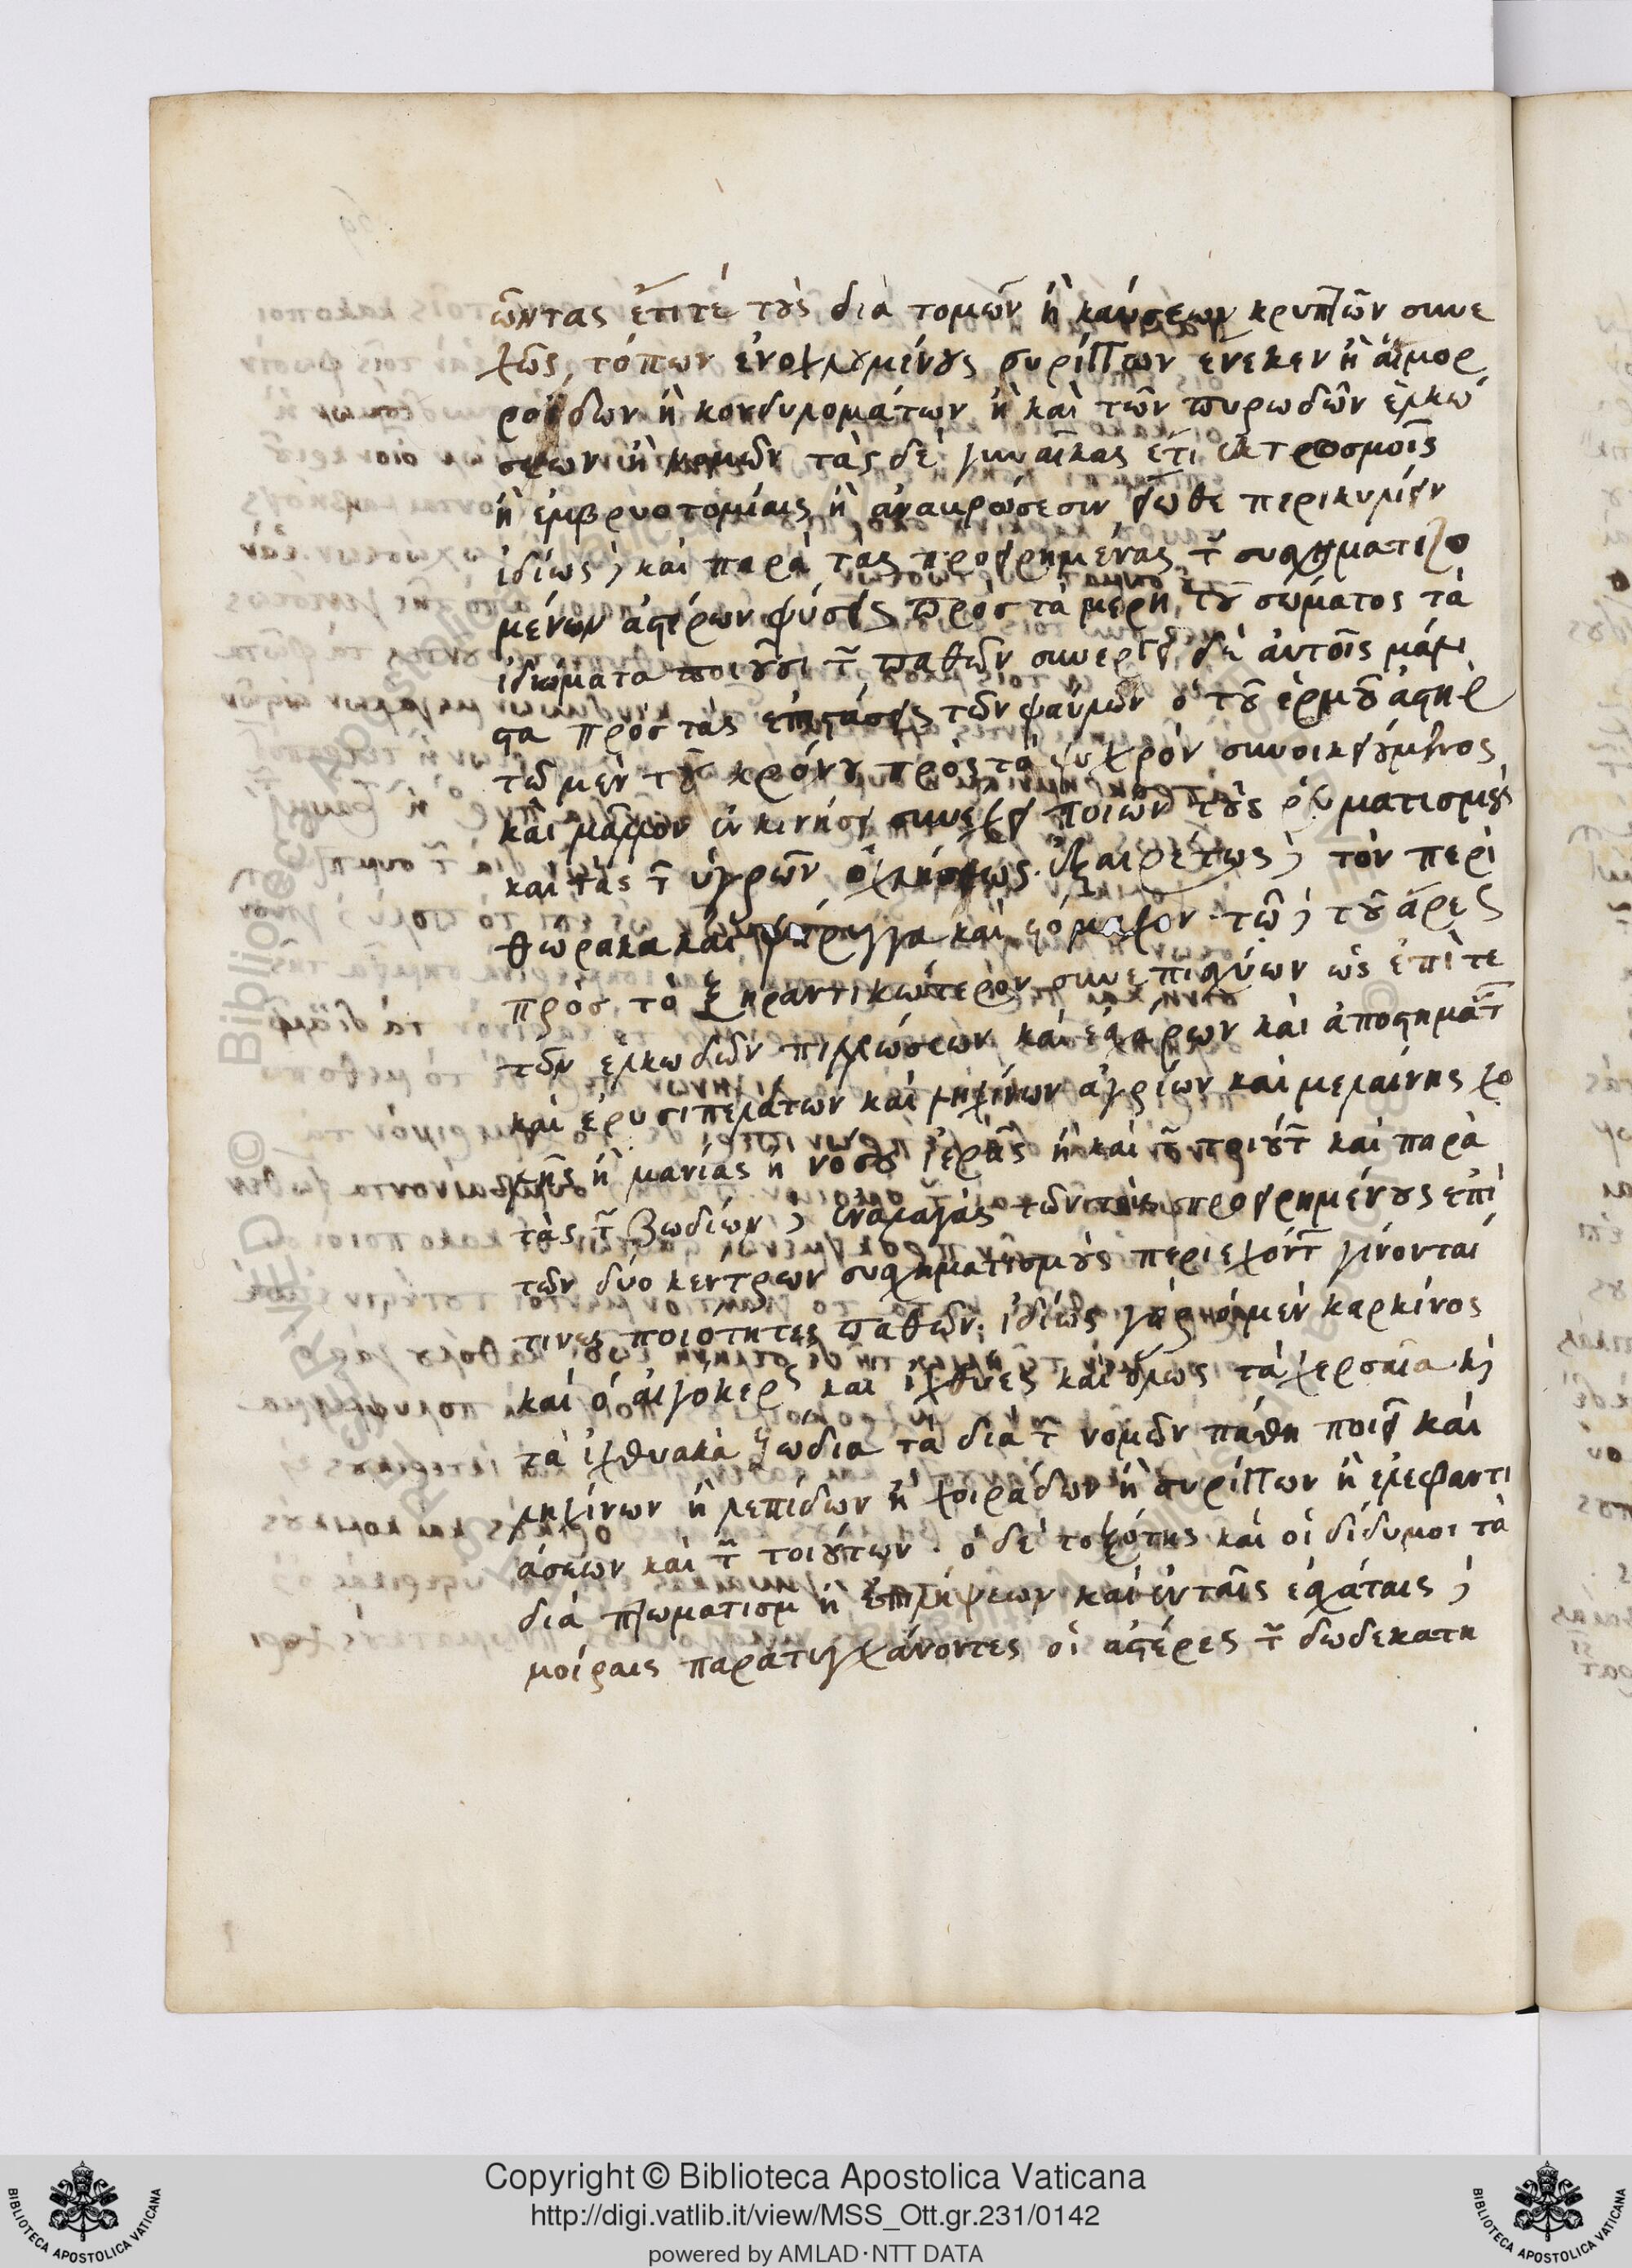 ῶντας ἔτι τὲ τοὺς διὰ τομῶν ἢ καύσεων κρυπτῶν συνε
χῶς, τόπων ἐνοχλουμένους συρίγγων ἕνεκεν ἢ αἱμορ
ροΐδων ἢ κονδυλομάτων ἢ καὶ τῶν πυρωδῶν ἑλκώ
σεων ἢ νομῶν τὰς δὲ γυναῖκας ἔτι ἐκτρωσμοῖς
ἢ ἐμβρυοτομίαις ἢ ἀναβρώσεσιν εἴωθε περικυλίειν
ἰδίως δὲ καὶ παρὰ τὰς προειρημένας τῶν συσχηματιζο
μένων ἀστέρων φύσεις πρὸς τὰ μέρη τοῦ σώματος τὰ
ἰδιώματα ποιοῦσι τῶν παθῶν συνεργεῖ δὲ αὐτοῖς μάλι
στα πρὸς τὰς ἐπιτάσεις τῶν φαύλων ὁ τοῦ ἑρμοῦ ἀστὴρ
τῶ μὲν τοῦ κρόνου πρὸς τὸ ψυχρὸν συνοικειούμενος
καὶ μᾶλλον ἐν κινήσει συνεχεῖ ποιῶν τοὺς ῥευματισμοὺς
καὶ τὰς τῶν ὑγρῶν ὀχλήσεως ἐξαιρέτως δὲ τὸν περὶ
θώρακα καὶ φάρυγγα καὶ στόμαχον τῶ δὲ τοῦ ἄρεως
πρὸς τὸ ξηραντικώτερον συνεπισχύων ὡς ἐπί τε
τῶν ἑλκωδῶν πιλλώσεων καὶ ἐσχαρῶν καὶ ἀποστημάτων
καὶ ἐρυσιπελάτων καὶ λειχήνων ἀγρίων καὶ μελαίνης χο
λῆς ἢ μανίας ἢ νόσου ἱερᾶς ἢ καὶ τῶν τοιούτων καὶ παρὰ
τὰς τῶν ζωδίων δὲ ἐναλλαγὰς τῶν τοὺς προειρημένους ἐπὶ
τῶν δύο κέντρων συσχηματισμοὺς περιεχόντων γίνονταί
τινες ποιότητες παθῶν ἰδίως γὰρ ὁ μὲν καρκίνος
καὶ ὁ αἰγόκερως καὶ ἰχθύες καὶ ὅλως τὰ χερσαῖα καὶ
τὰ ἰχθυακὰ ζώδια τὰ διὰ τῶν νομῶν πάθη ποιεῖ καὶ
λειχήνων ἢ λεπίδων ἢ χοιράδων ἢ συρίγγων ἢ ἐλεφαντι
άσεων καὶ τῶν τοιούτων · ὁ δὲ τοξότης καὶ οἱ δίδυμοι τὰ
διὰ πτωματισμῶν ἢ ἐπιλήψεων καὶ ἐν ταῖς ἐσχάταις δὲ
μοίραις παρατυγχάνοντες οἱ ἀστέρες τῶν δωδεκατη
Copyright © Biblioteca Apostolica Vaticana
http://digi.vatlib.it/view/MSS_Ott.gr.231/0142
powered by AMLAD·NTT DATA
BIBLIOTECA APOSTOLICA VATICANA
BIBLIOTECA APOSTOLICA VATICANA